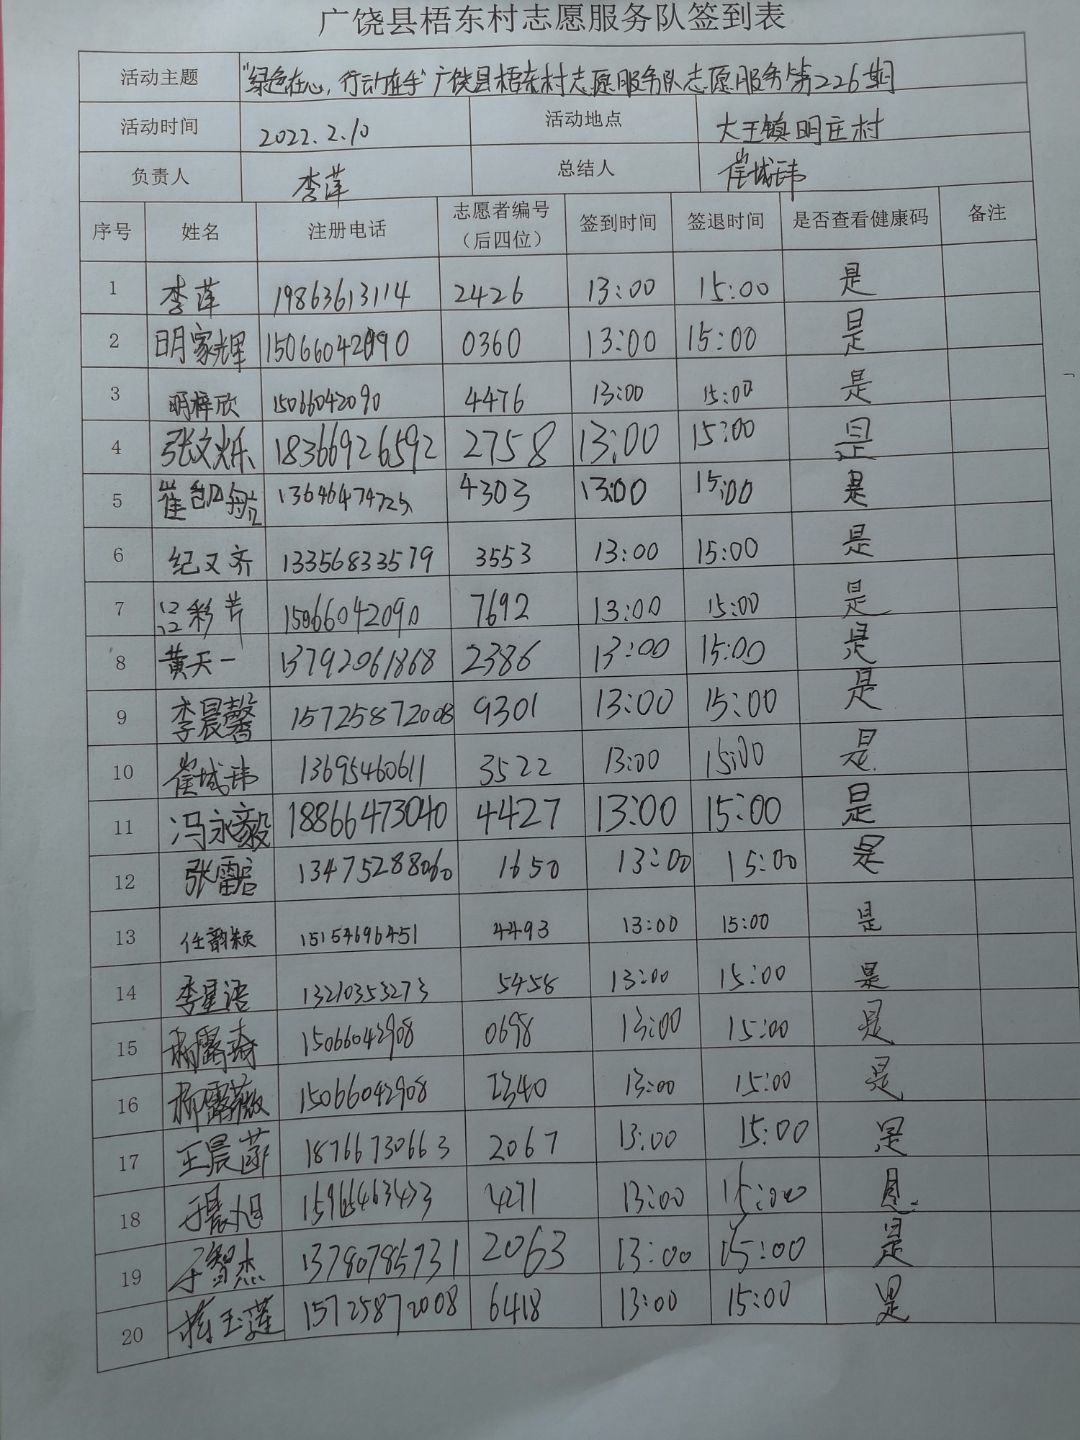 广饶县梧东村志愿服务队签到表
活动主题 “绿色在心，行动在手”广饶县梧东村志愿服务队志愿服务第226期
活动时间 2022.2.10 活动地点 大王镇明庄村
负责人 李萍 总结人 崔城玮
序号 姓名 注册电话 志愿者编号（后四位） 签到时间 签退时间 是否查看健康码 备注
1 李萍 19863613114 2426 13:00 15:00 是
2 明家辉 15066042090 0360 13:00 15:00 是
3 明梓欣 15066042090 4476 13:00 15:00 是
4 张文烁 18366926592 2758 13:00 15:00 是
5 崔凯航 4303 13:00 15:00 是
6 纪又齐 13356833579 3553 13:00 15:00 是
7 15066042090 7692 13:00 15:00 是
8 黄天一 13792061868 2386 13:00 15:00 是
9 李晨馨 15725872008 9301 13:00 15:00 是
10 崔城玮 13695460611 3522 13:00 15:00 是
11 冯永毅 18866473040 4427 13:00 15:00 是
12 13475288060 1650 13:00 15:00 是
13 任韵颖 15154696451 4493 13:00 15:00 是
14 李星语 13210353273 5458 13:00 15:00 是
15 15066042908 0698 13:00 15:00 是
16 15066042908 2340 13:00 15:00 是
17 王晨菡 18766730663 2067 13:00 15:00 是
18 于晨旭 4271 13:00 15:00 是
19 于智杰 13780785731 2063 13:00 15:00 是
20 15725872008 6418 13:00 15:00 是